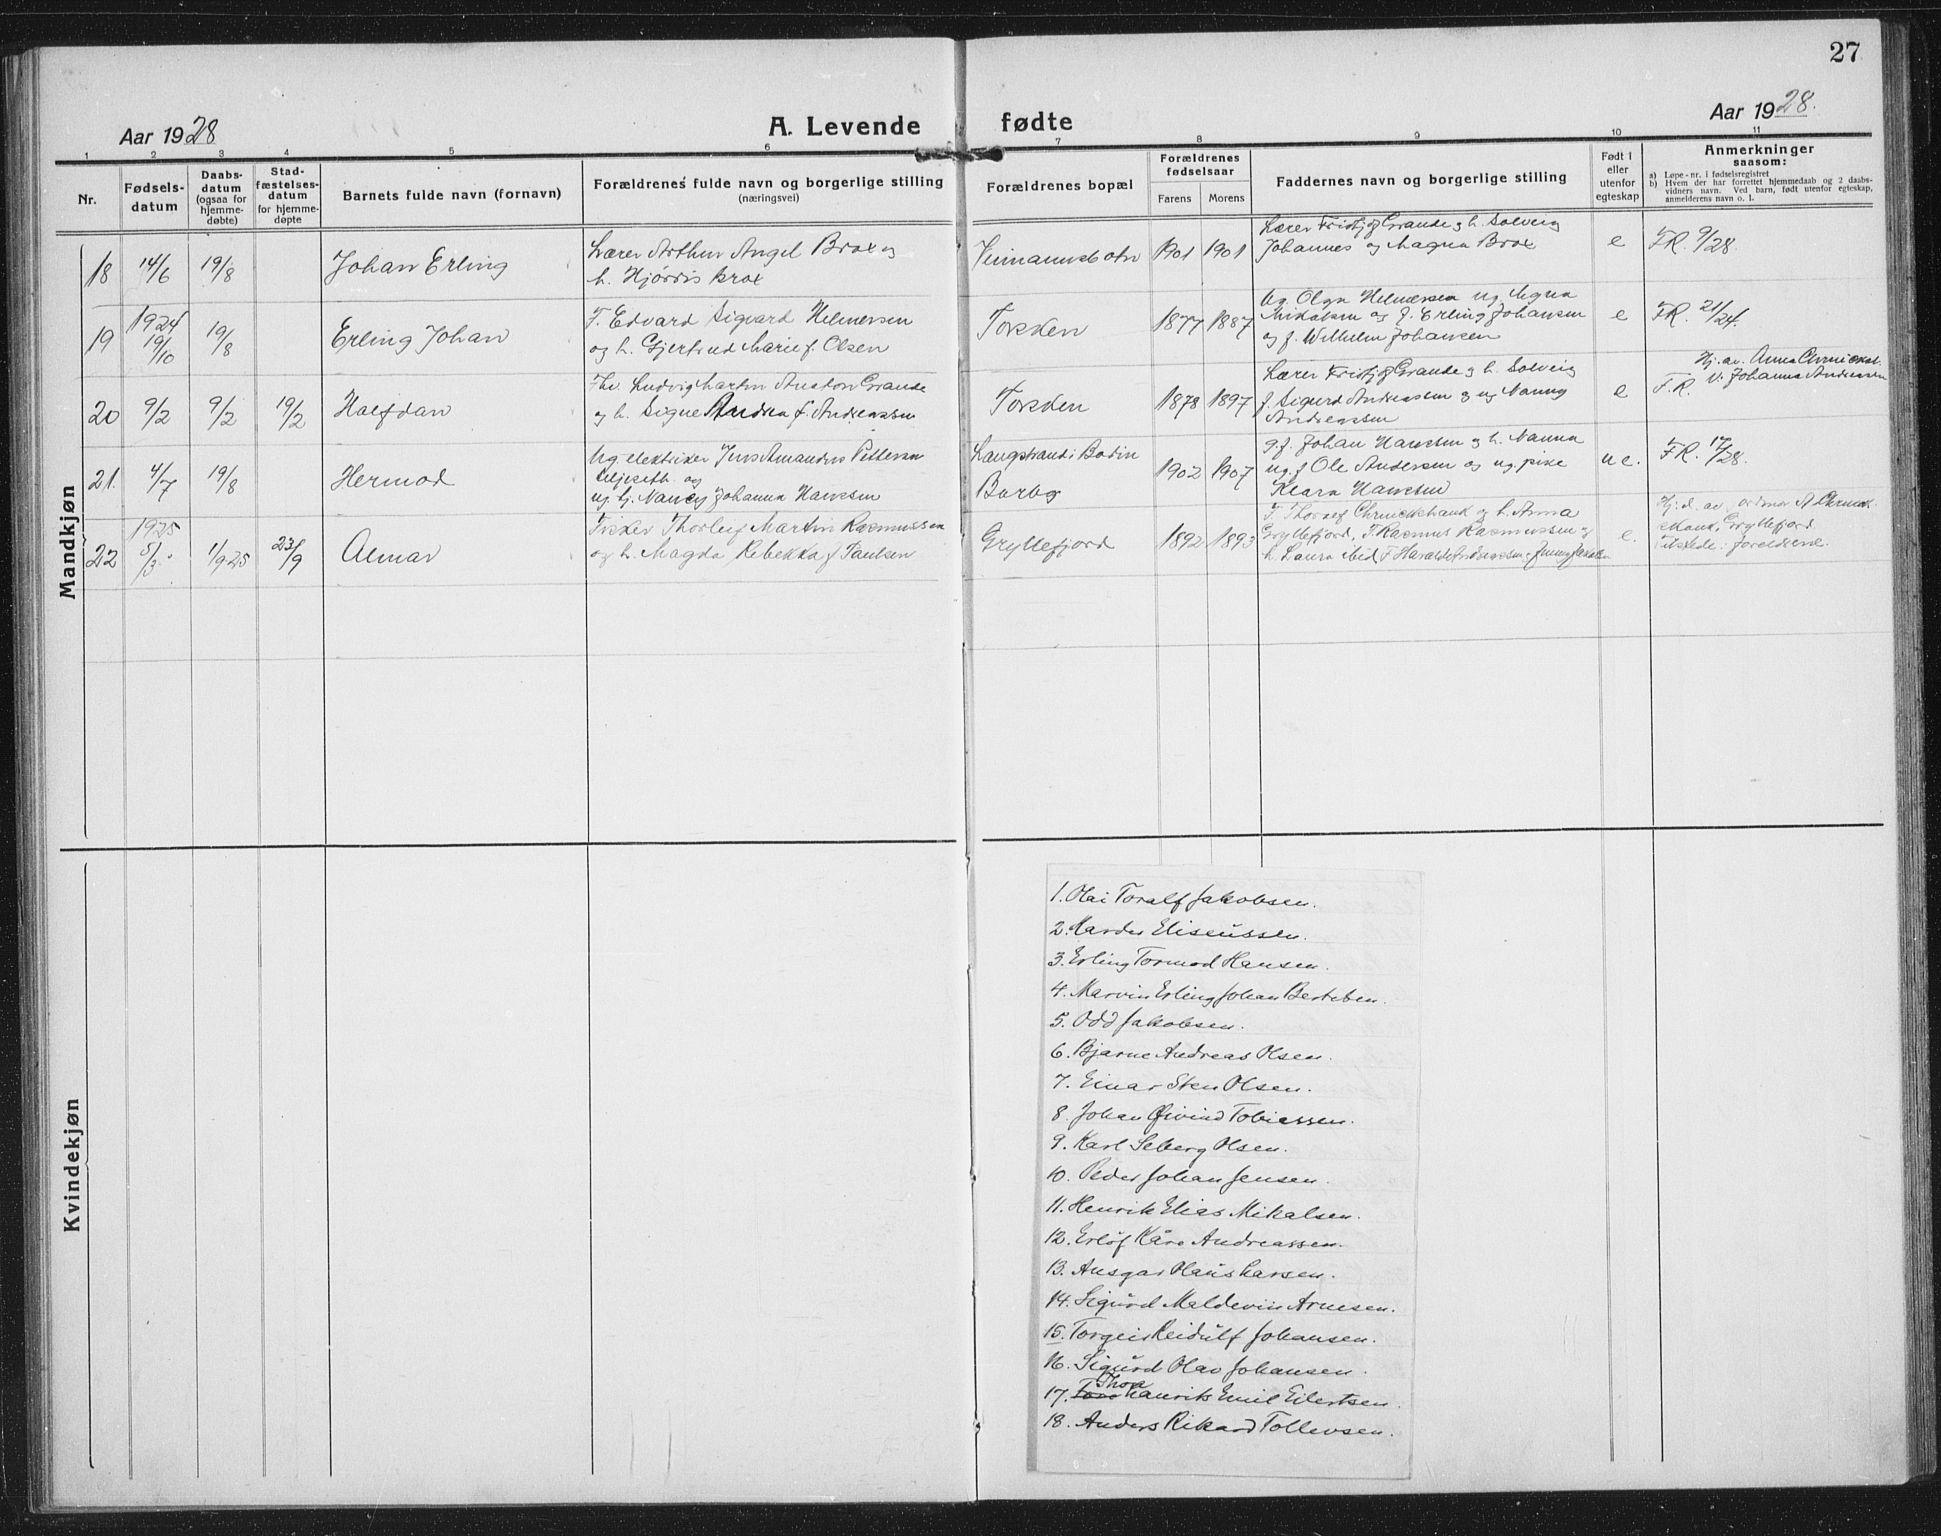 27
Aar 1928
A. Levende fødte
Aar 1928.
1 2 3 4 5 6 7 8 9 10 11
Nr.
Fødsels-
datum
Daabs-
datum
(ogsaa for
hjemme-
døbte)
Stad-
fæstelses-
datum
for hjemme-
døpte
Barnets fulde navn (fornavn)
Forældrenes fulde navn og borgerlige stilling
(næringsvei)
Forældrenes bopæl
Forældrenes
fødselsaar
Farens Morens
Faddernes navn og borgerlige stilling
Født i
eller
utenfor
egteskap
Anmerkninger
saasom:
a) Løpe-nr. i fødselsregistret
b) Hvem der har forrettet hjemmedaab og 2 daabs-
vidners navn. Ved barn, født utenfor egteskap,
anmelderens navn o. l.
Mandkjøn
18 14/6 19/8
Johan Erling
Lærer Arthur Angel Brox og
h. Hjørdis Brox
1901 1901
Lærer Fridtjof Grande og h. Solveig
Johannes og Magna Brox
e
FR. 9/28.
19
1924
19/10
19/8
Erling Johan
F. Edvard Sigvard Helmersen
og h. Gjertrud Marie f. Olsen
Torsken
1877 1887
Ug. Olga Helmersen ug. Agna
Mikalsen og f. Erling Johansen
og f. Wilhelm Johansen
e
FR. 21/24.
20 9/2 9/2 19/2
Halfdan
Ludvig Martin Anston Grande
og h. Signe Andrea f. Andreassen
Torsken
1878 1897
Lærer Fridtjof Grande og h. Solveig
f. Sigurd Andreassen og ug Nanny
Andreassen
e
F.R.
Hj. av. Anna
V: Johanna Andreassen
21. 4/7 19/8
Hermod
Ug elektriker Jens Amandus Pettersen
og
ug. tj. Nancy Johanna Hansen
Langstrand i Bodin
1902 1907
g.f. Johan Hansen og h. Nanna
ug. f Ole Andersen og ug. pike
Klara Hansen
u e.
FR. 17/28.
22
1925
5/3.
1/9 25
23/9
Almar
Fisker Thorleif Martin Rasmussen
og h. Magda Rebekka f Paulsen
Gryllefjord
1892 1893
h. Anna
Gryllefjord, F. Rasmus Rasmussen og
h. Laura
e.
Hj. d. av
Gryllefjord.
Tilstede: foreldrene.
Kvindekjøn
1. Olai Toralf Jakobsen.
2. Harder Eliseussen.
3. Erling Tormod Hansen.
4. Marvin Erling Johan Berteben.
5. Odd Jakobsen.
6. Bjarne Andreas Olsen.
7. Einar Sten Olsen.
8. Johan Øivind Tobiassen.
9. Karl Seberg Olsen.
10. Peder Johan Jensen.
11. Henrik Elias Mikalsen.
12. Erlöf Kåre Andreassen.
13. Ansgar Olaus Larsen.
14. Sigurd Maldeviin Arnesen.
15. Torgeir Reidulf Johansen.
16. Sigurd Olav Johansen.
Thor
17. Henrik Emil Eilertsen.
18. Anders Rikard Tollevsen.